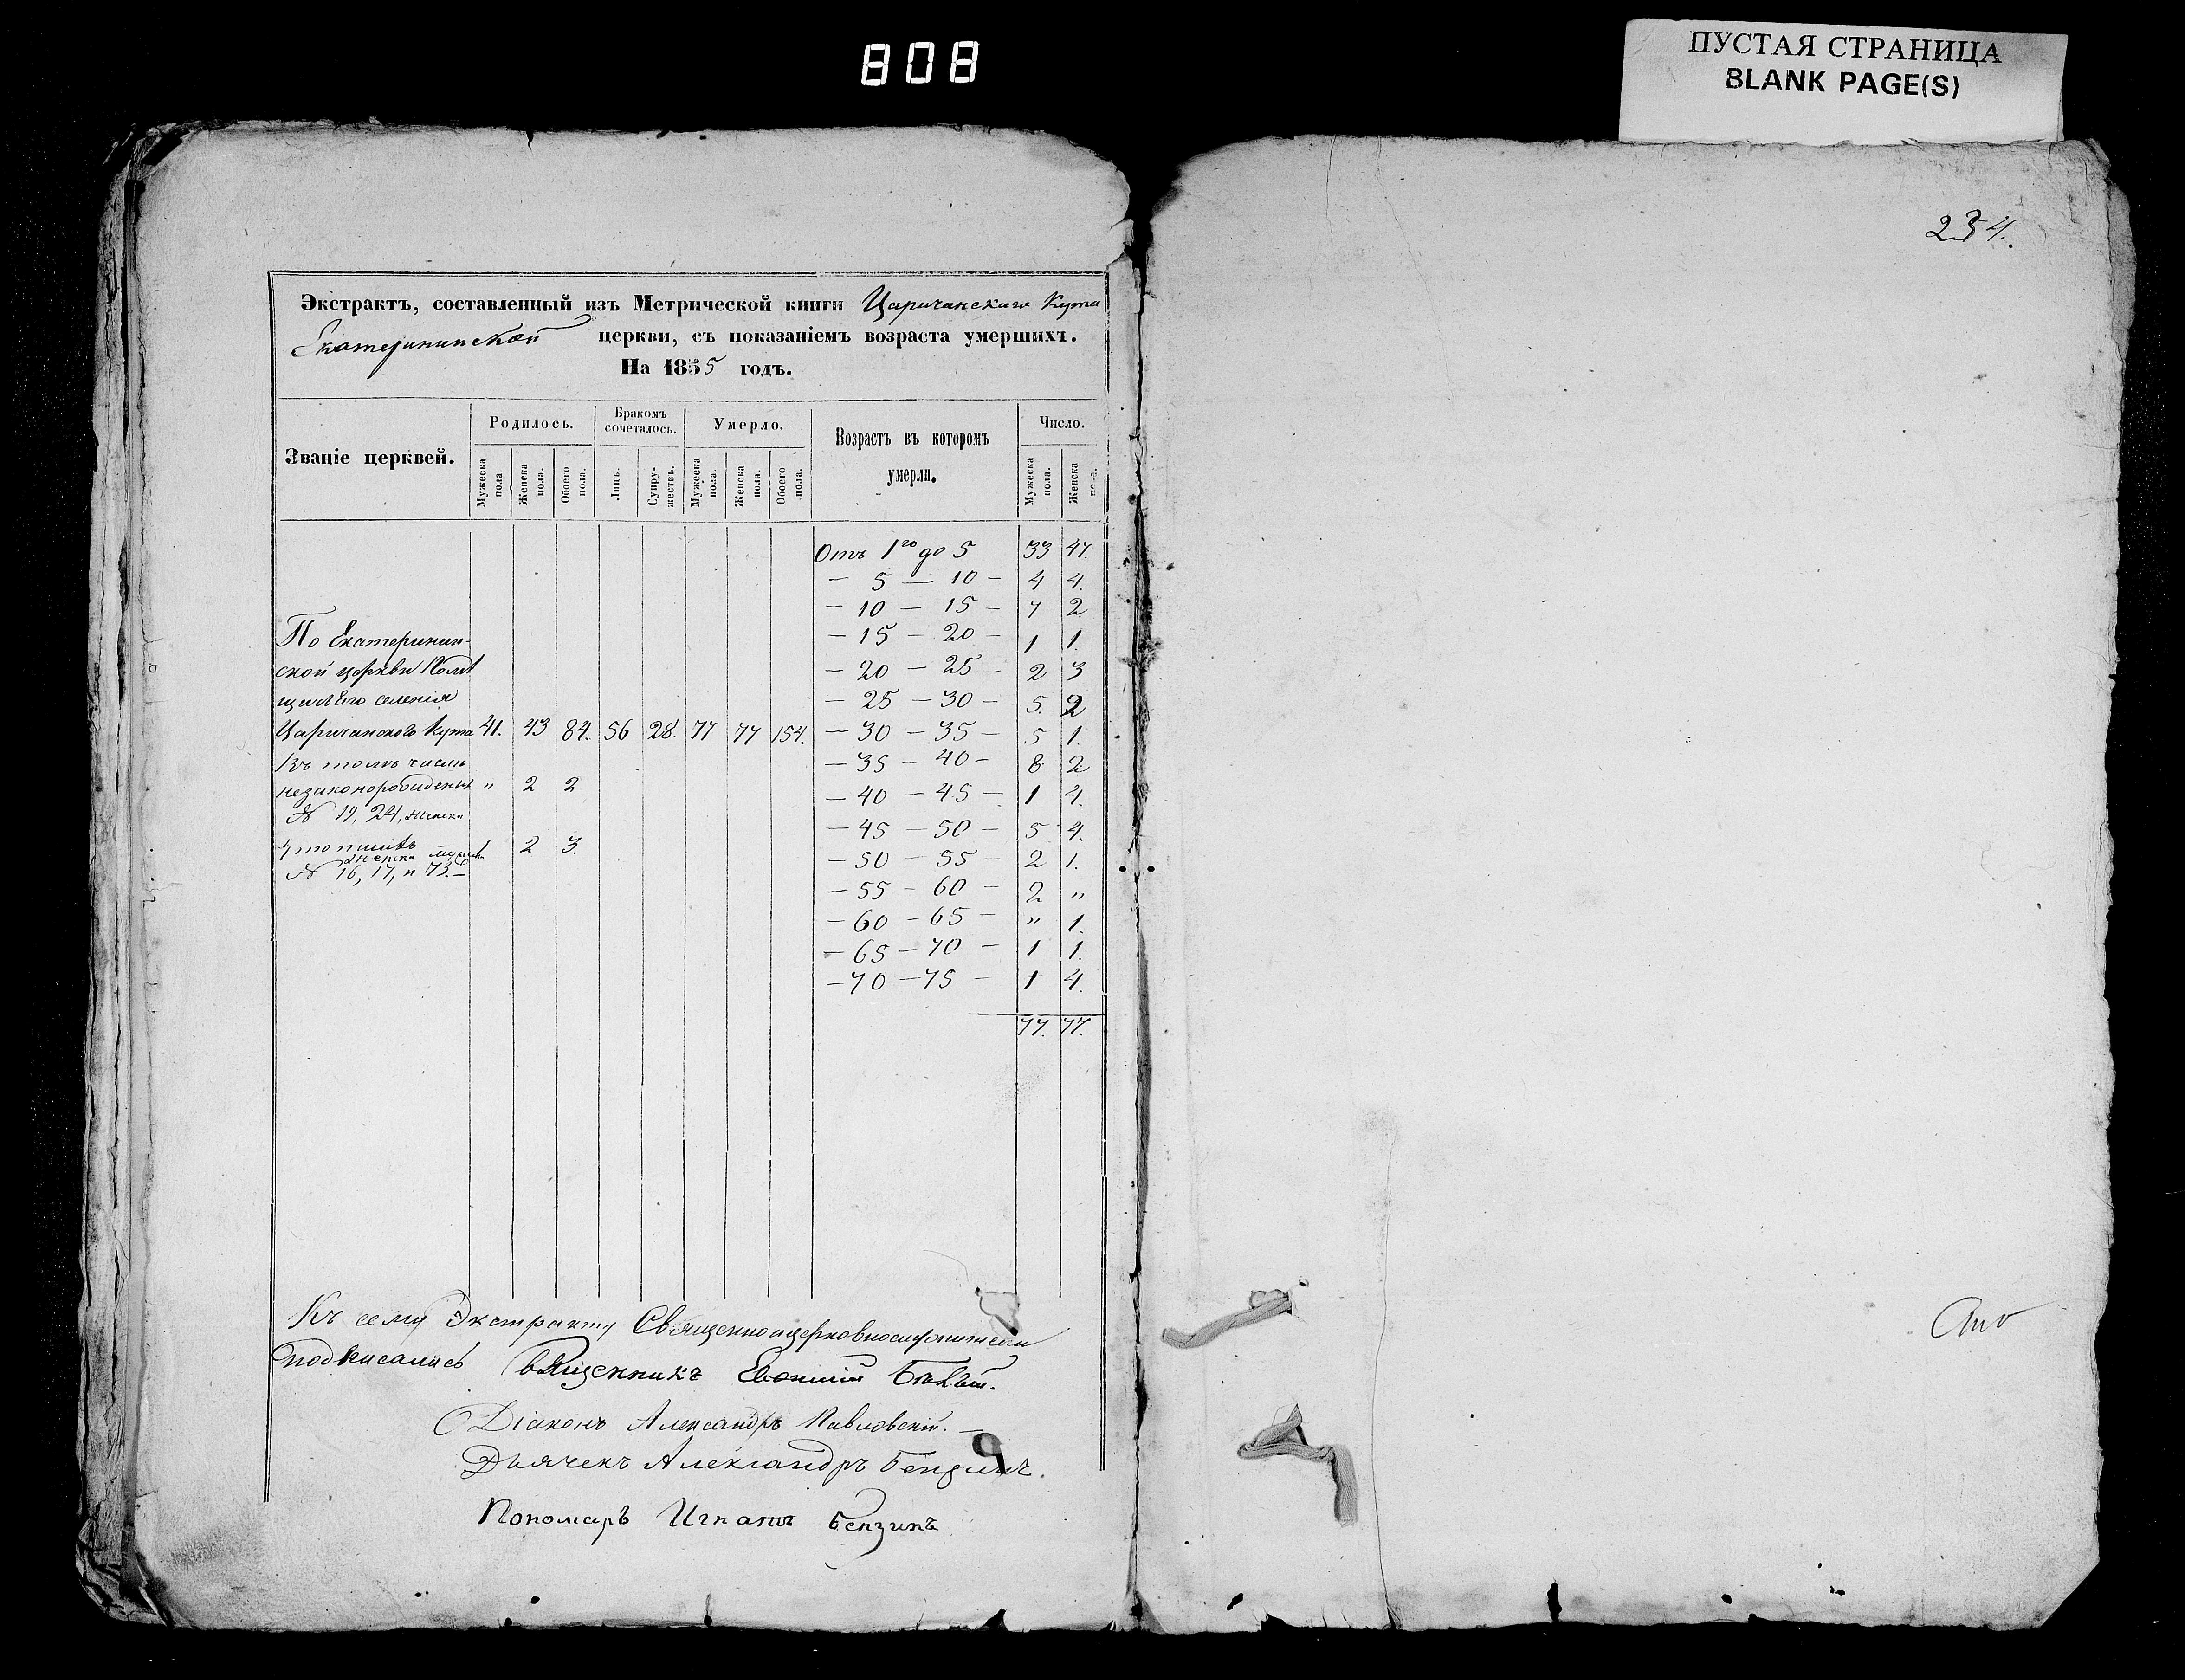 808
ПУСТАЯ СТРАНИЦА
BLANK PAGE(S)
234.
Экстрактъ, составленный изъ Метрической книги Царичанскаго Кута
Екатерининской церкви, съ показаніемъ возраста умершихъ.
На 1855 годъ.
Званіе церквей.
Родилось.
Бракомъ сочеталось.
Умерло.
Возрастъ въ которомъ умерли.
Число.
Мужеска пола
Женска пола.
Обоего пола.
Лицъ.
Супружествъ.
Мужеска пола.
Женска пола.
Обоего пола.
Мужеска пола.
Женска пола.
Отъ 1го до 5 33 47.
— 5 — 10 — 4 4.
— 10 — 15 — 7 2
— 15 — 20 — 1 1.
— 20 — 25 — 2 3
— 25 — 30 — 5. 2
— 30 — 35 — 5 1.
— 35 — 40 — 8 2
— 40 — 45 — 1 4.
— 45 — 50 — 5 4.
— 50 — 55 — 2 1.
— 55 — 60 — 2 „
— 60 — 65 — „ 1.
— 65 — 70 — 1 1.
— 70 — 75 — 1 4.
77. 77.
По Екатеринин-
ской церкви
селенія
Царичанскаго Кута 41. 43 84. 56 28. 77 77 154.
Въ томъ числѣ
незаконорожденныхъ „ 2 2
№ 19, 24, женска
2 3.
№ 16, 17, и 73.—
Къ сему Экстракту Священноцерковнослужители
подписались Священникъ
Діаконъ Александръ Павловскій. —
Дьячекъ Александръ Бензинъ.
Пономарь Игнатъ Бензинъ